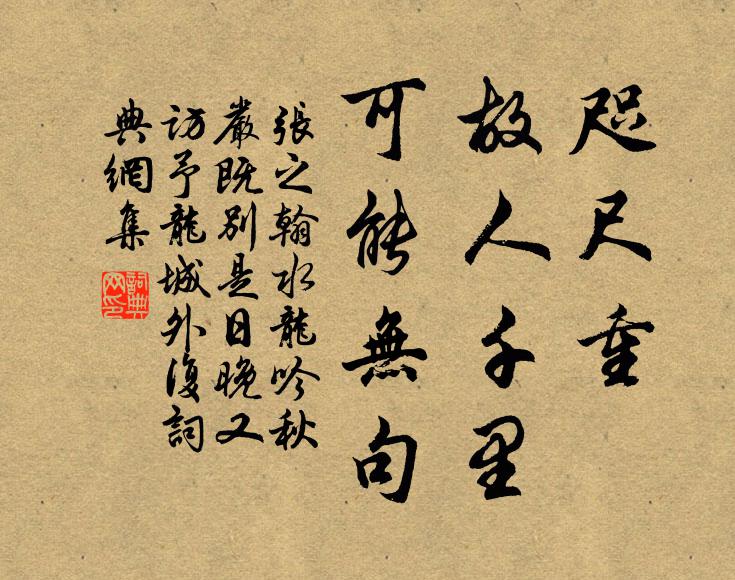 咫尺重
故人千里
可能無句
張之翰水龍吟秋
嚴既別是日晚又
訪予龍城外復詞
典網集
詞典
网印